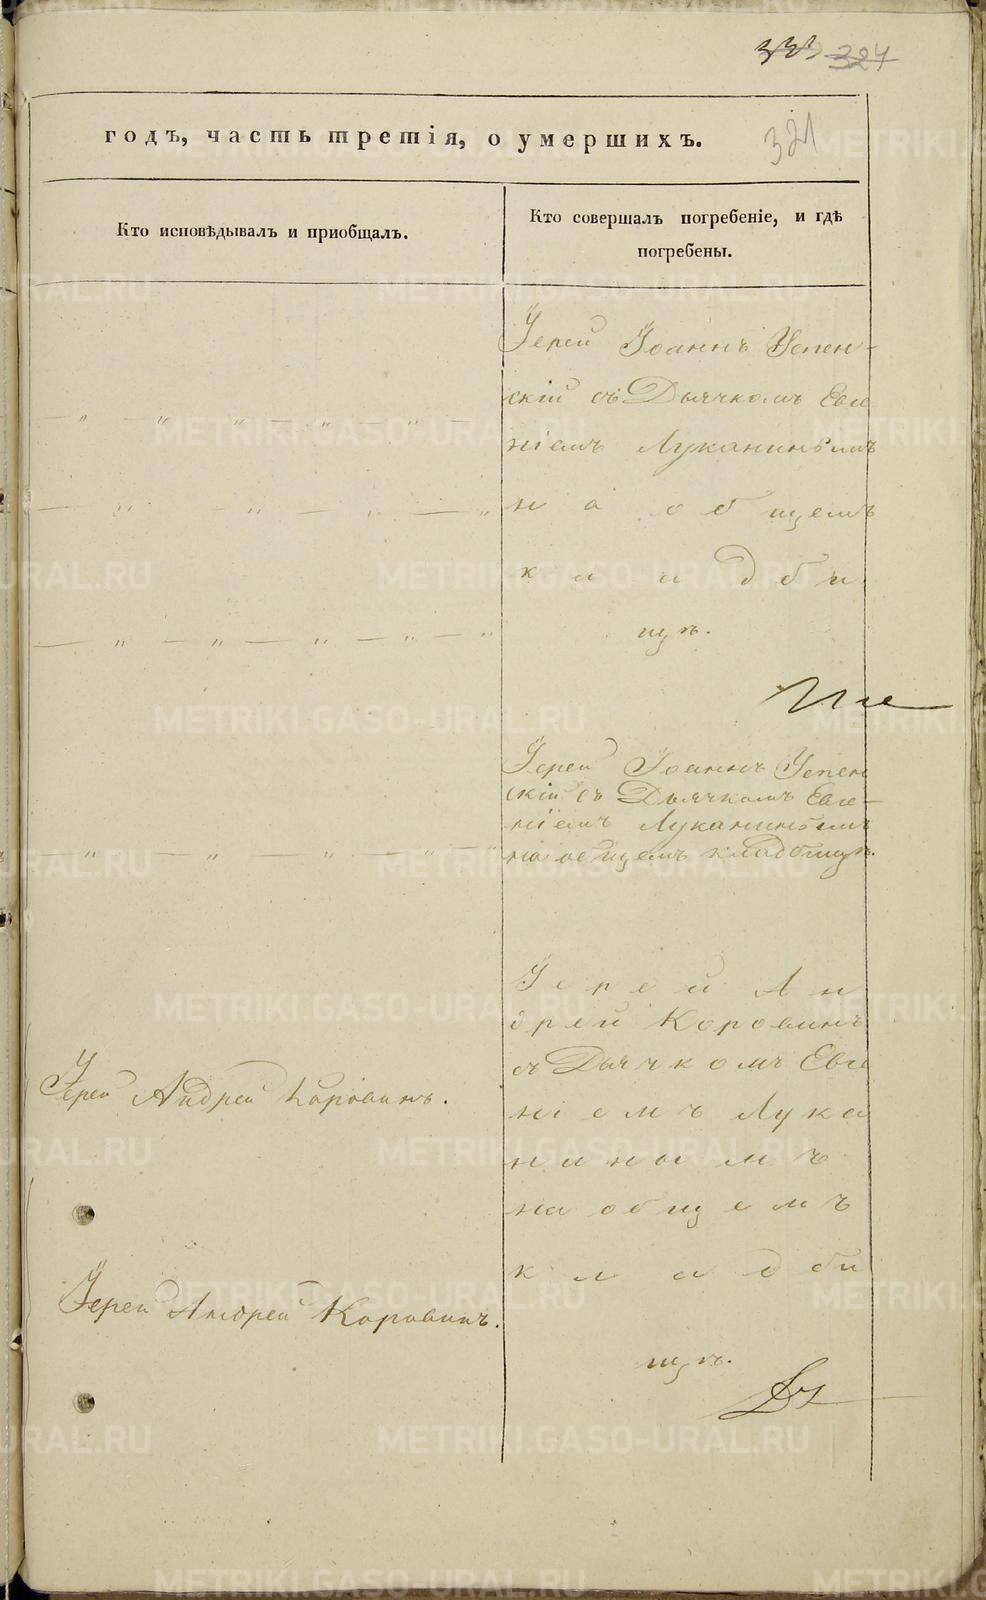 333 327
321
годъ, часть третія, о умершихъ.
Кто исповѣдывалъ и пріобщалъ.
Кто совершалъ погребеніе, и гдѣ
погребены.
Іерей Іоаннъ Успен-
скій съ Дьячкомъ Евге
ніемъ Луканинымъ
на общемъ
кладби
щѣ.
Іерей Іоаннъ Успен
скій съ Дьячкомъ Евге-
ніемъ Луканинымъ
на общемъ кладбищѣ.
Іерей Ан
дрей Коровинъ
съ Дьячкомъ Евге
ніемъ Лука
нинымъ
на общемъ
кладби
щѣ.
Іерей Андрей Коровинъ.
Іерей Андрей Коровинъ.
METRIKI.GASO-URAL.RU